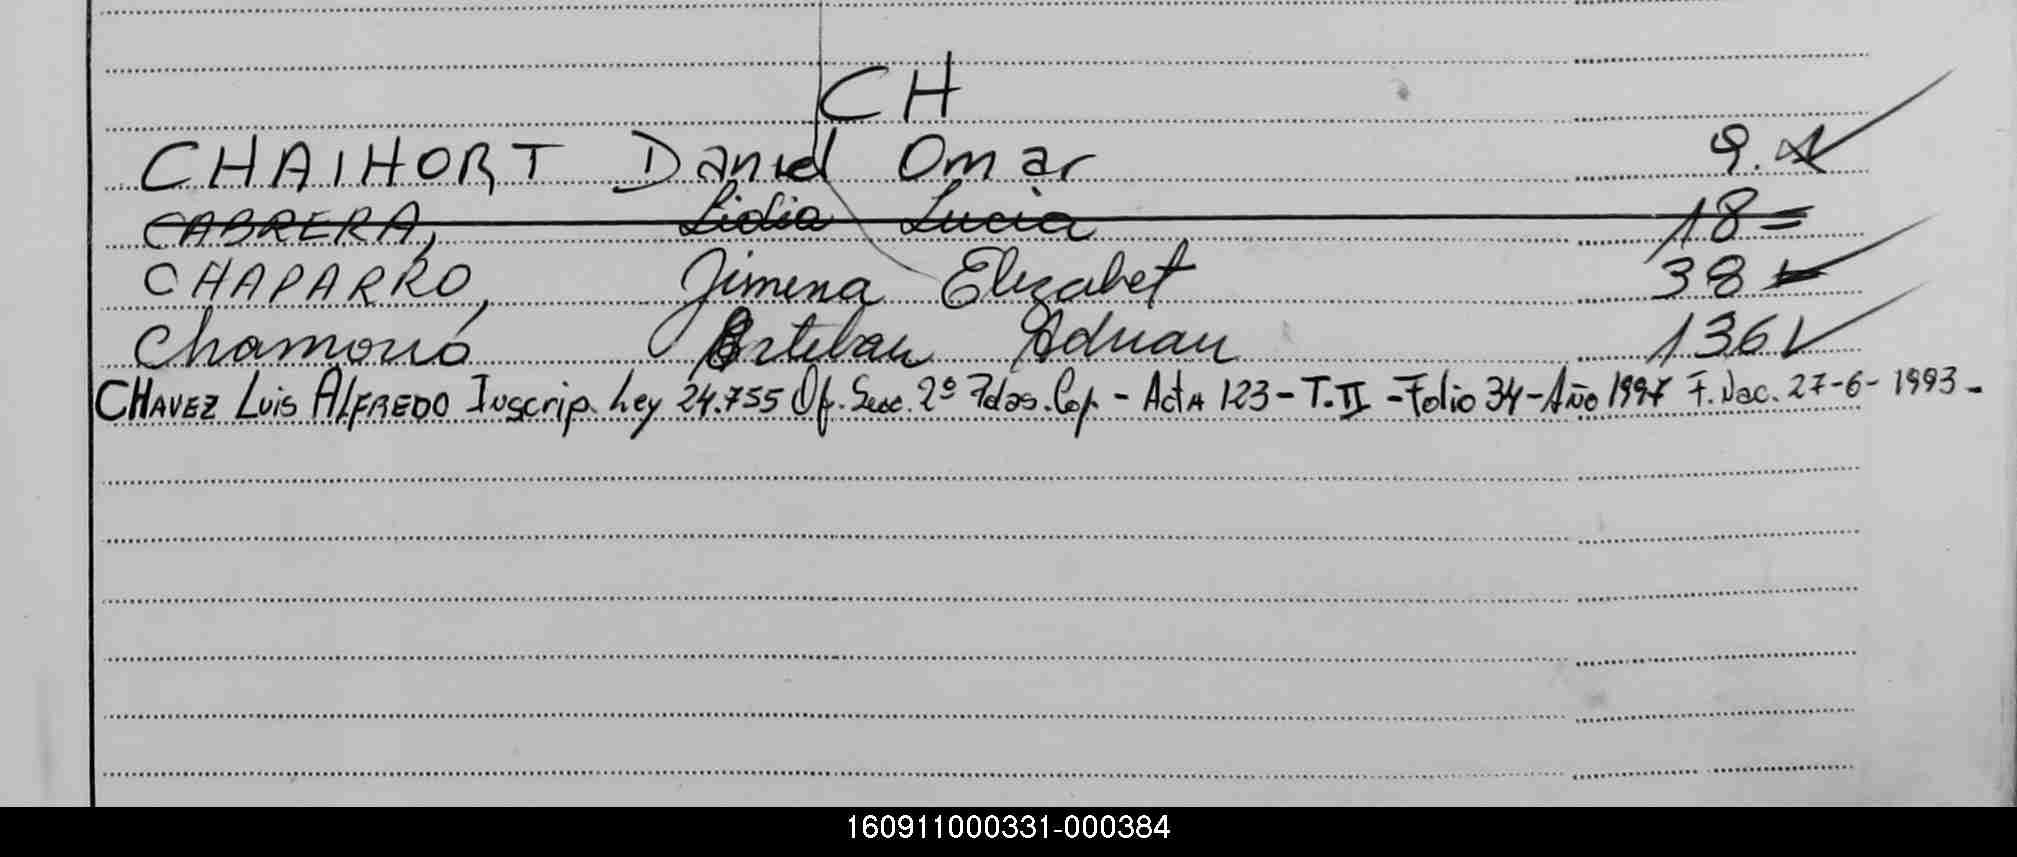 CH
CHAIHORT Daniel Omar 9.
CABRERA, Lidia Lucia 18=
CHAPARRO, Jimena Elizabet 38
Chamorro Esteban Adrian 136
CHAVEZ Luis ALFREDO Inscrip. Ley 24.755 Of. Secc. 2º Pdas. Cap. - Acta 123 - T. II - Folio 34 - Año 1997 F. Nac. 27-6-1993-
160911000331-000384